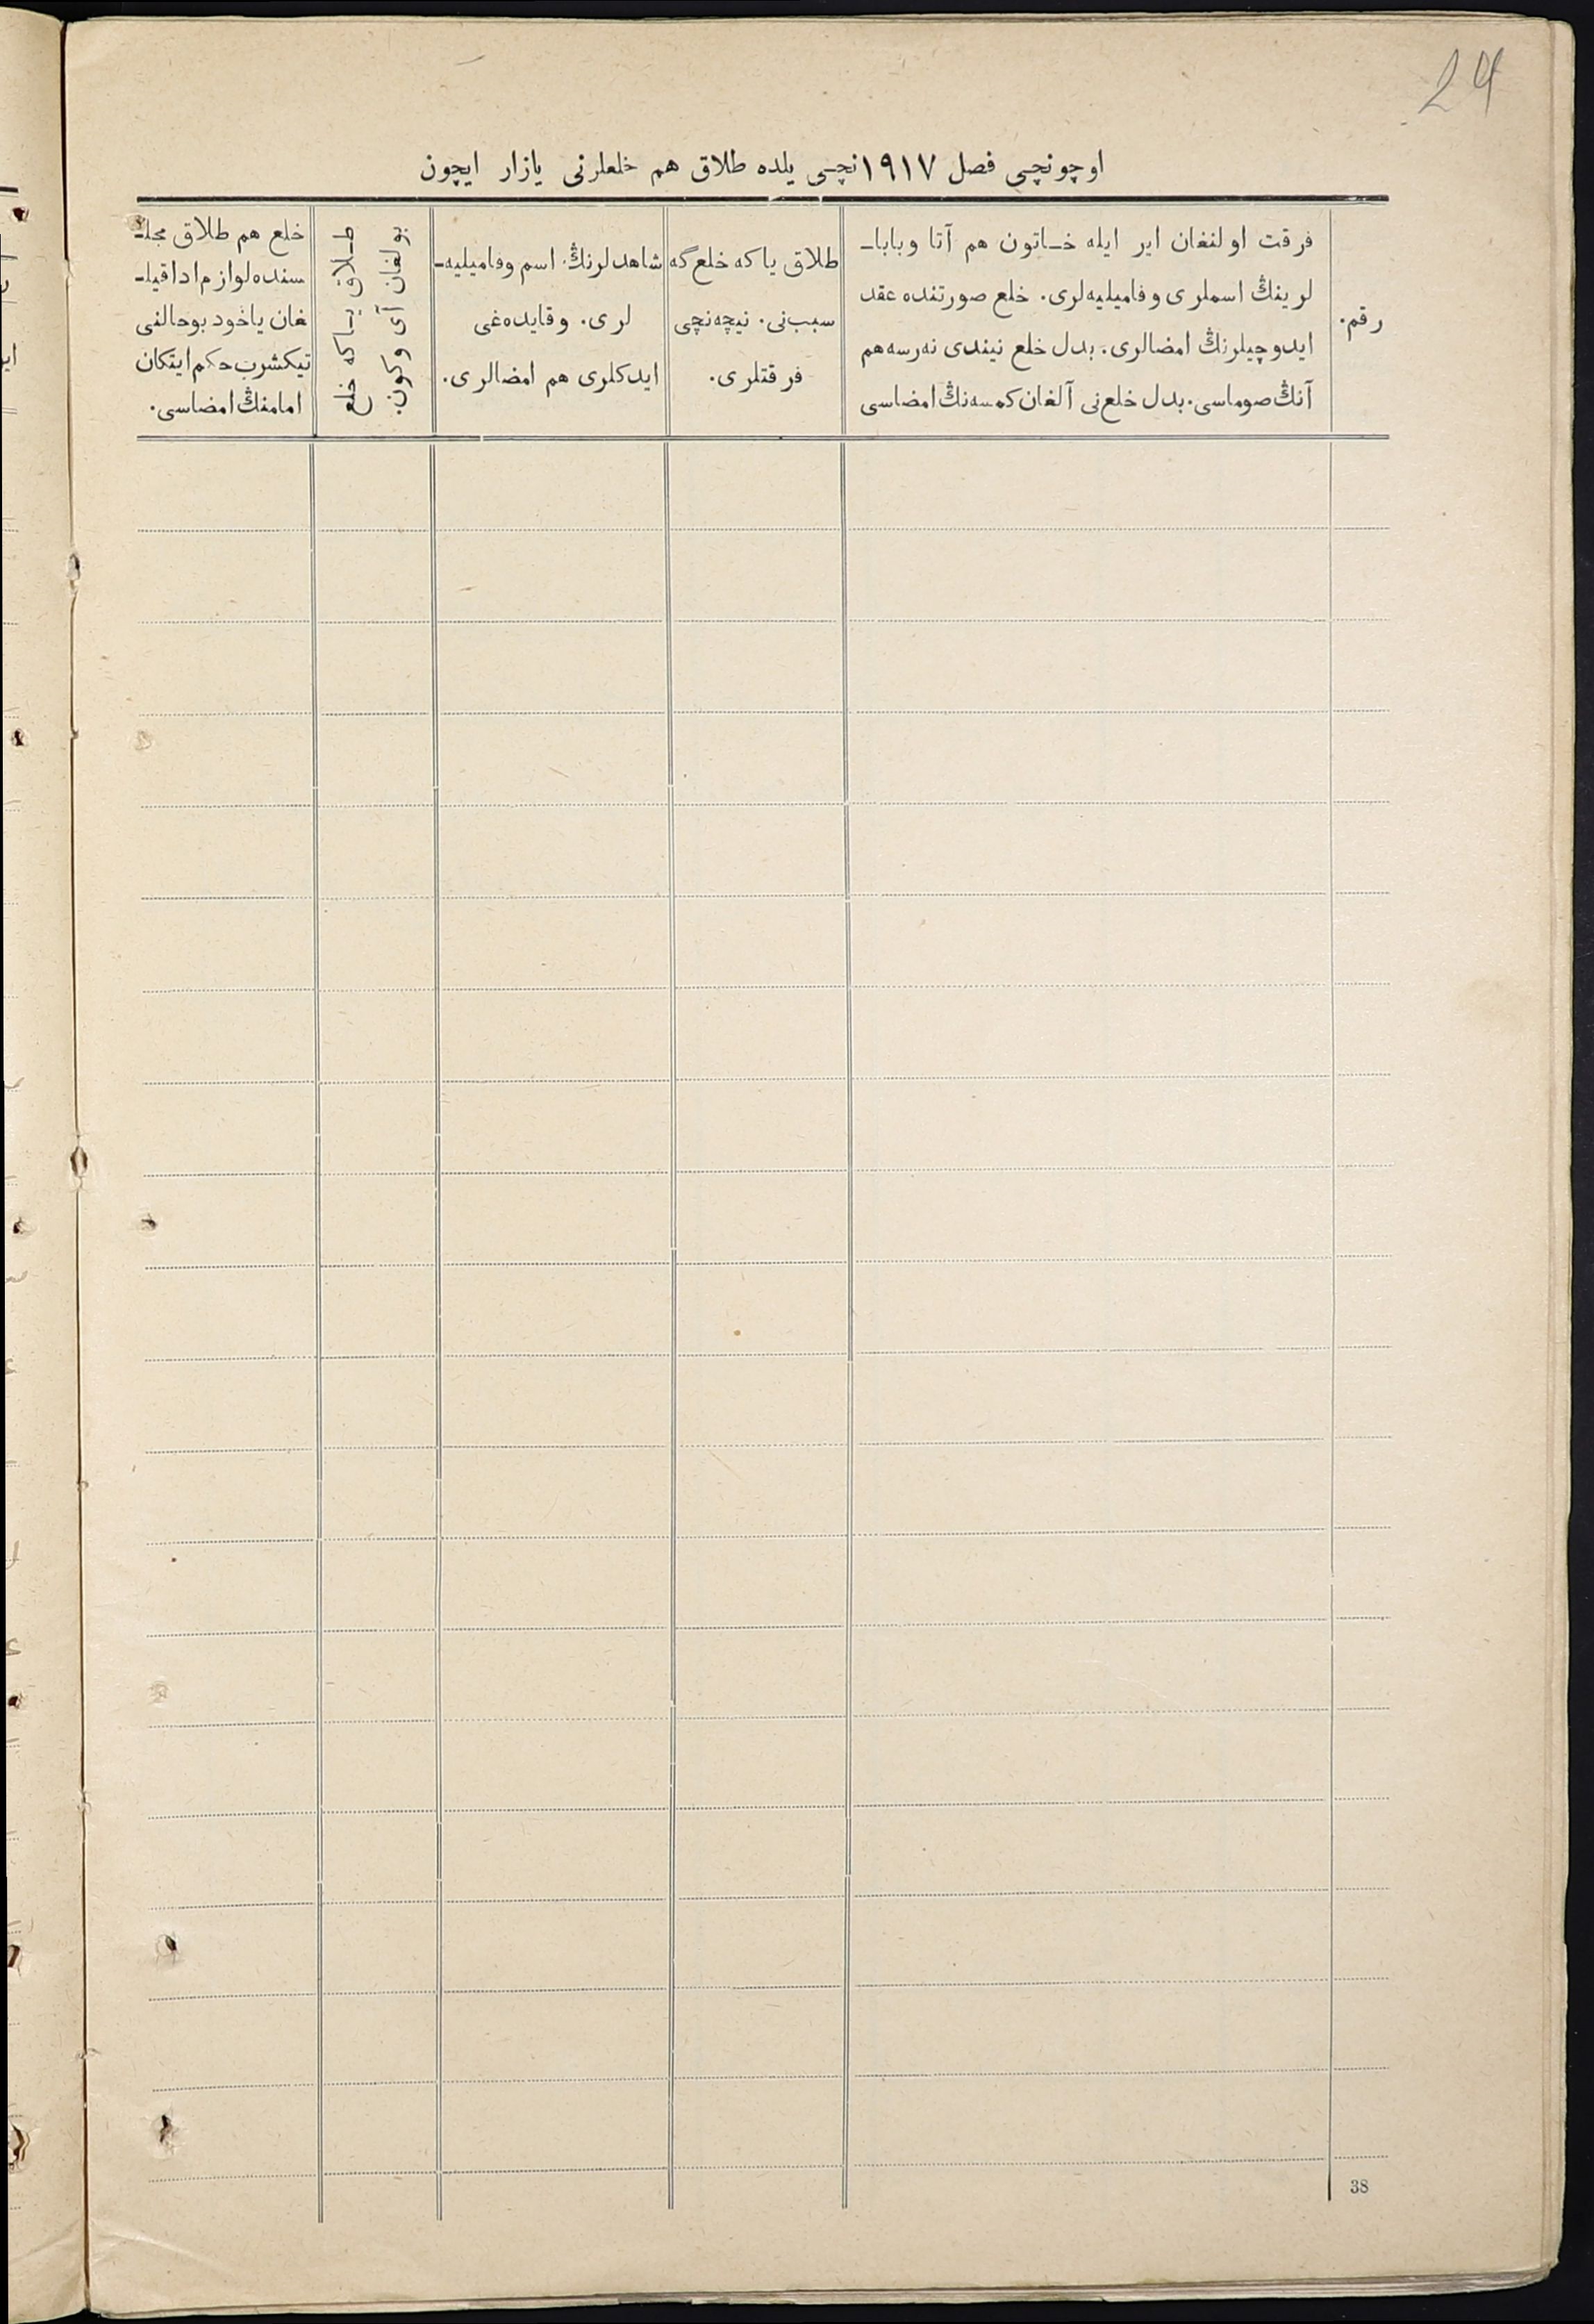 24
اوچونچی فصل ١٩١٧نچی یلده طلاق هم خلعلرنی یازار ایچون
رقم.
فرقت اولنغان ایر ایله خـاتون هم آتا وباباـ
لرینڭ اسملری وفامیلیه‌لری. خلع صورتنده عقد
ایدوچیلرنڭ امضالری. بدل خلع نیندی نه‌رسه هم
آنڭ صوماسی. بدل خلع‌نی آلغان کمسه‌نڭ امضاسی
طلاق یا که خلع گه
سبب‌نی. نیچه‌نچی
فرقتلری.
شاهدلرنڭ اسم وفامیلیه‌ـ
لری. وقایده‌غی
ایدکلری هم امضالری.
طـلاق یـا که خلع
بولغان آی و کون.
خلع هم طلاق مجلـ
سنده لوازم ادا قیلـ
غان یاخود بوحالنی
تیکشرب حکم ایتکان
امامنڭ امضاسی.
38